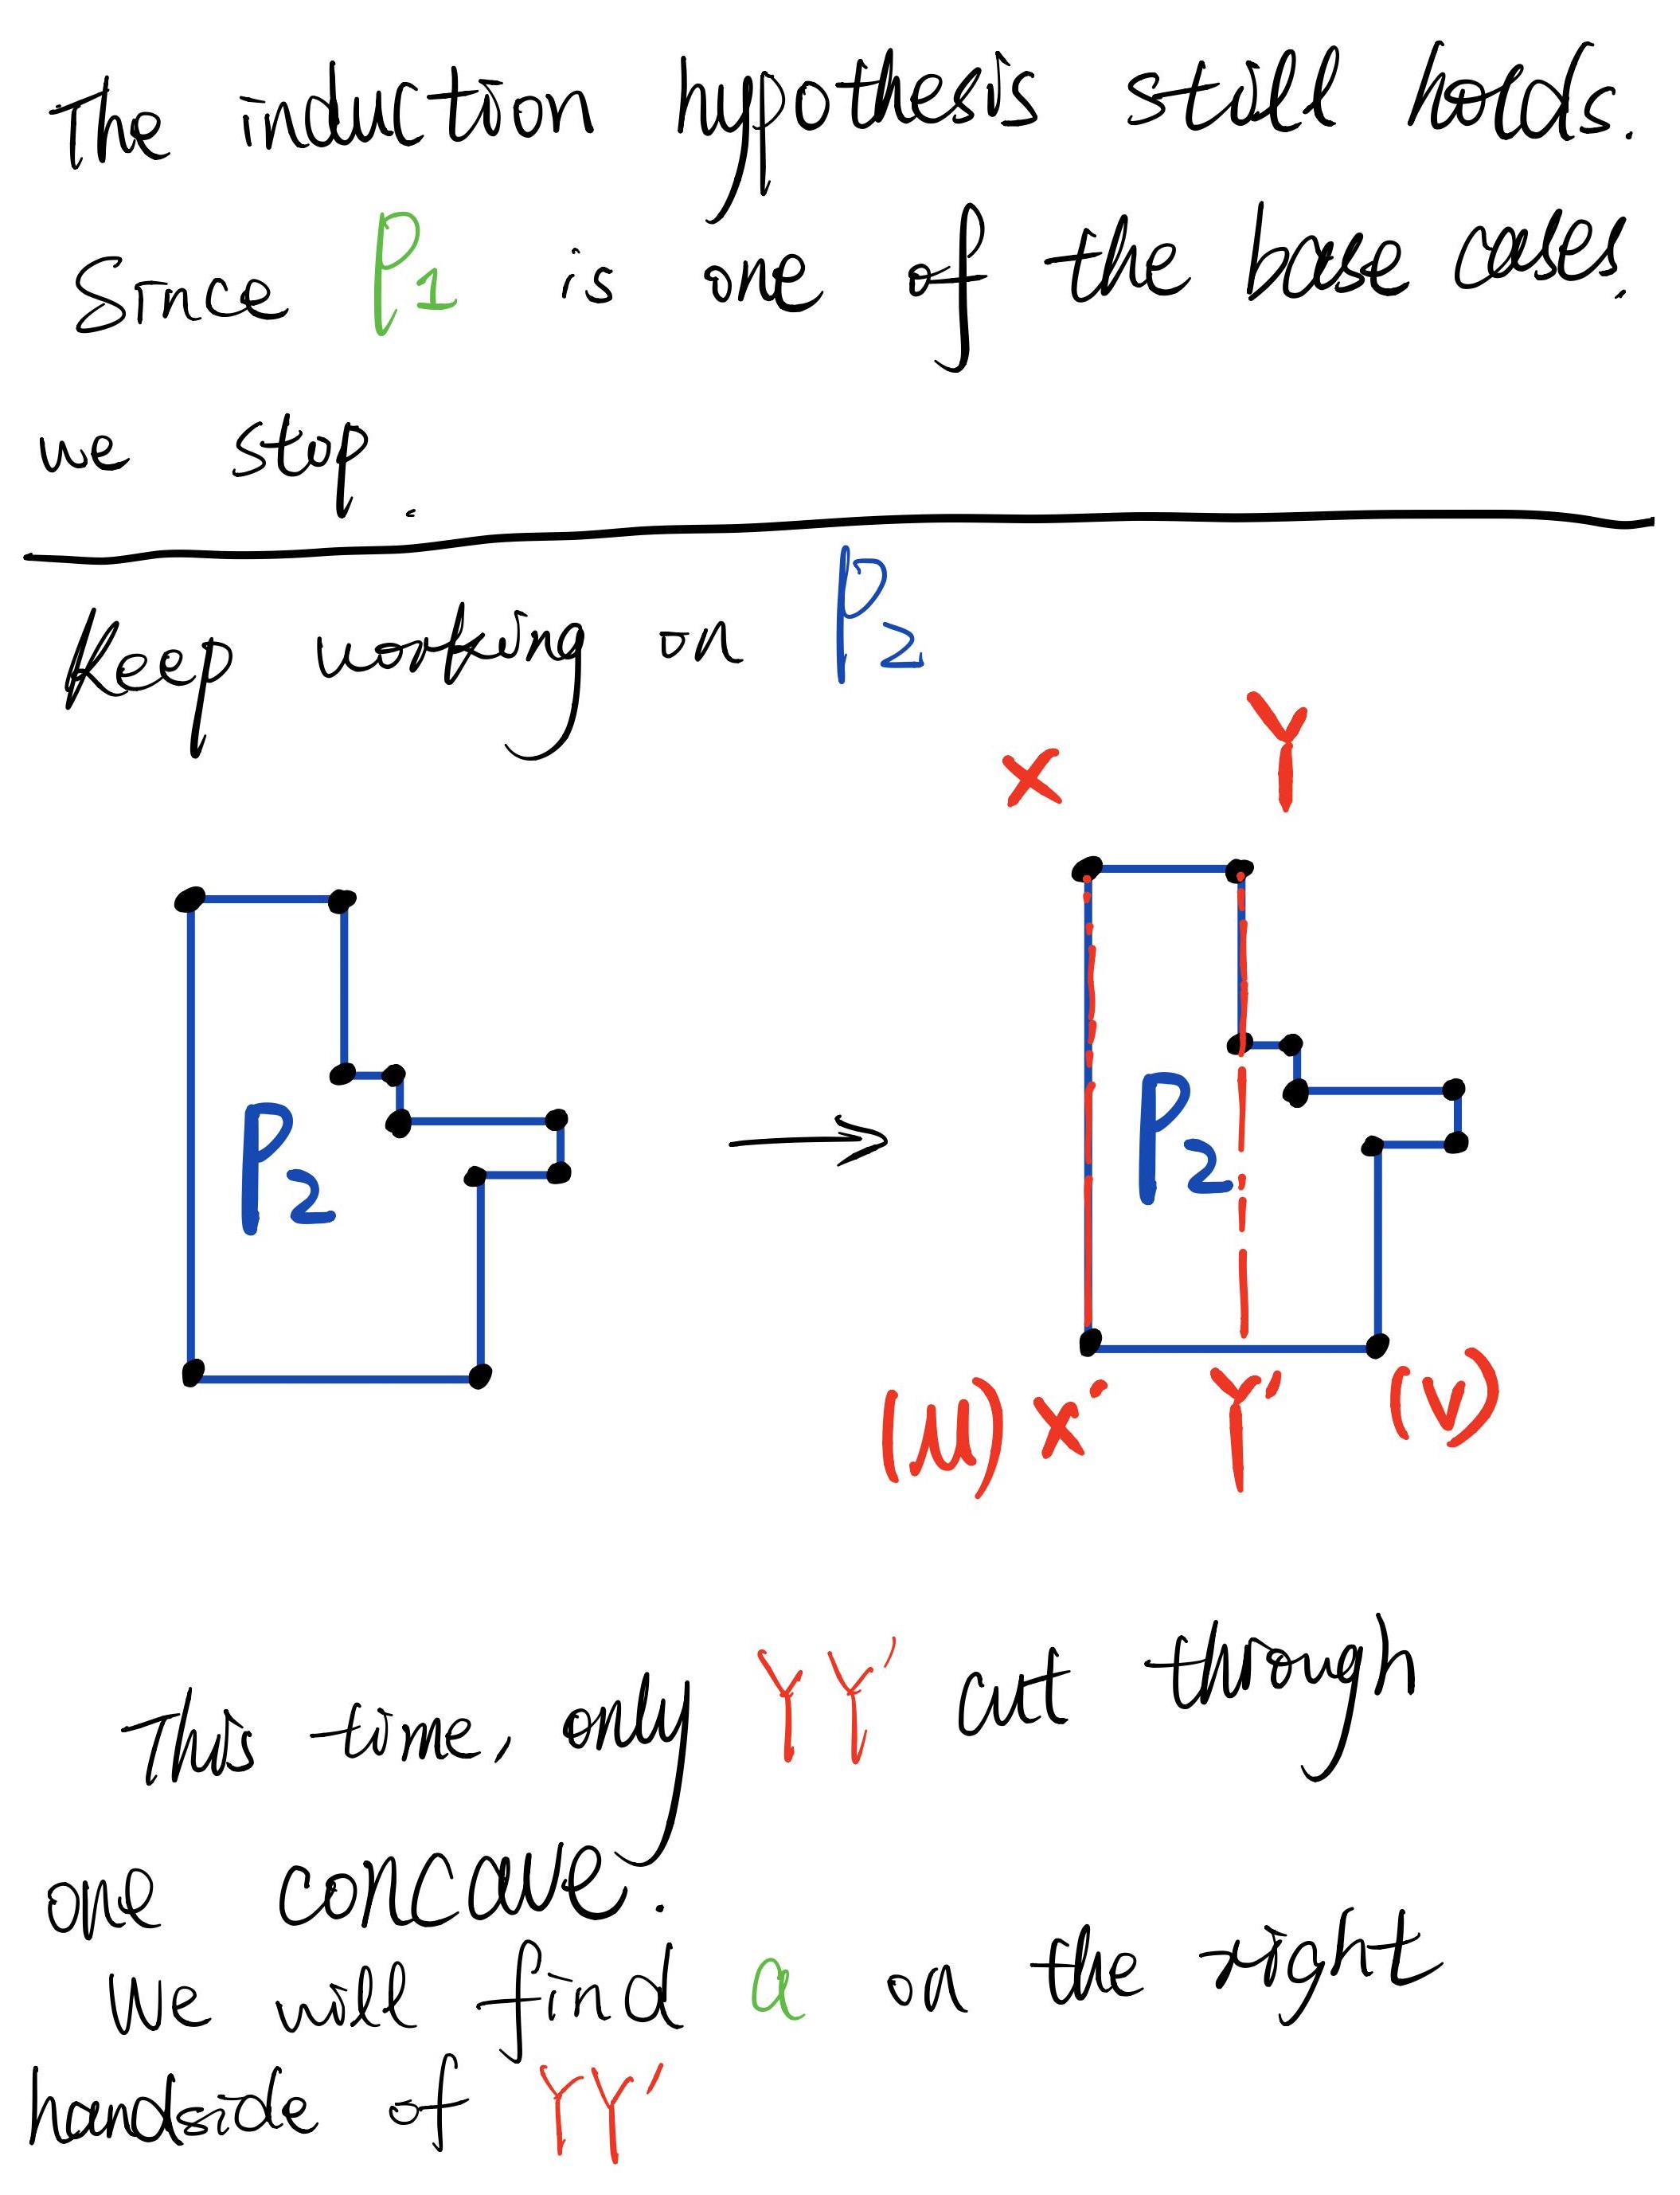 The induction hypothesis still holds.
Since P1 is one of the base cases,
we stop.
Keep working on P2
X Y
P2
P2
(u) X' Y' (v)
This time, only YY' cut through
one concave.
We will find a on the right
handside of YY'